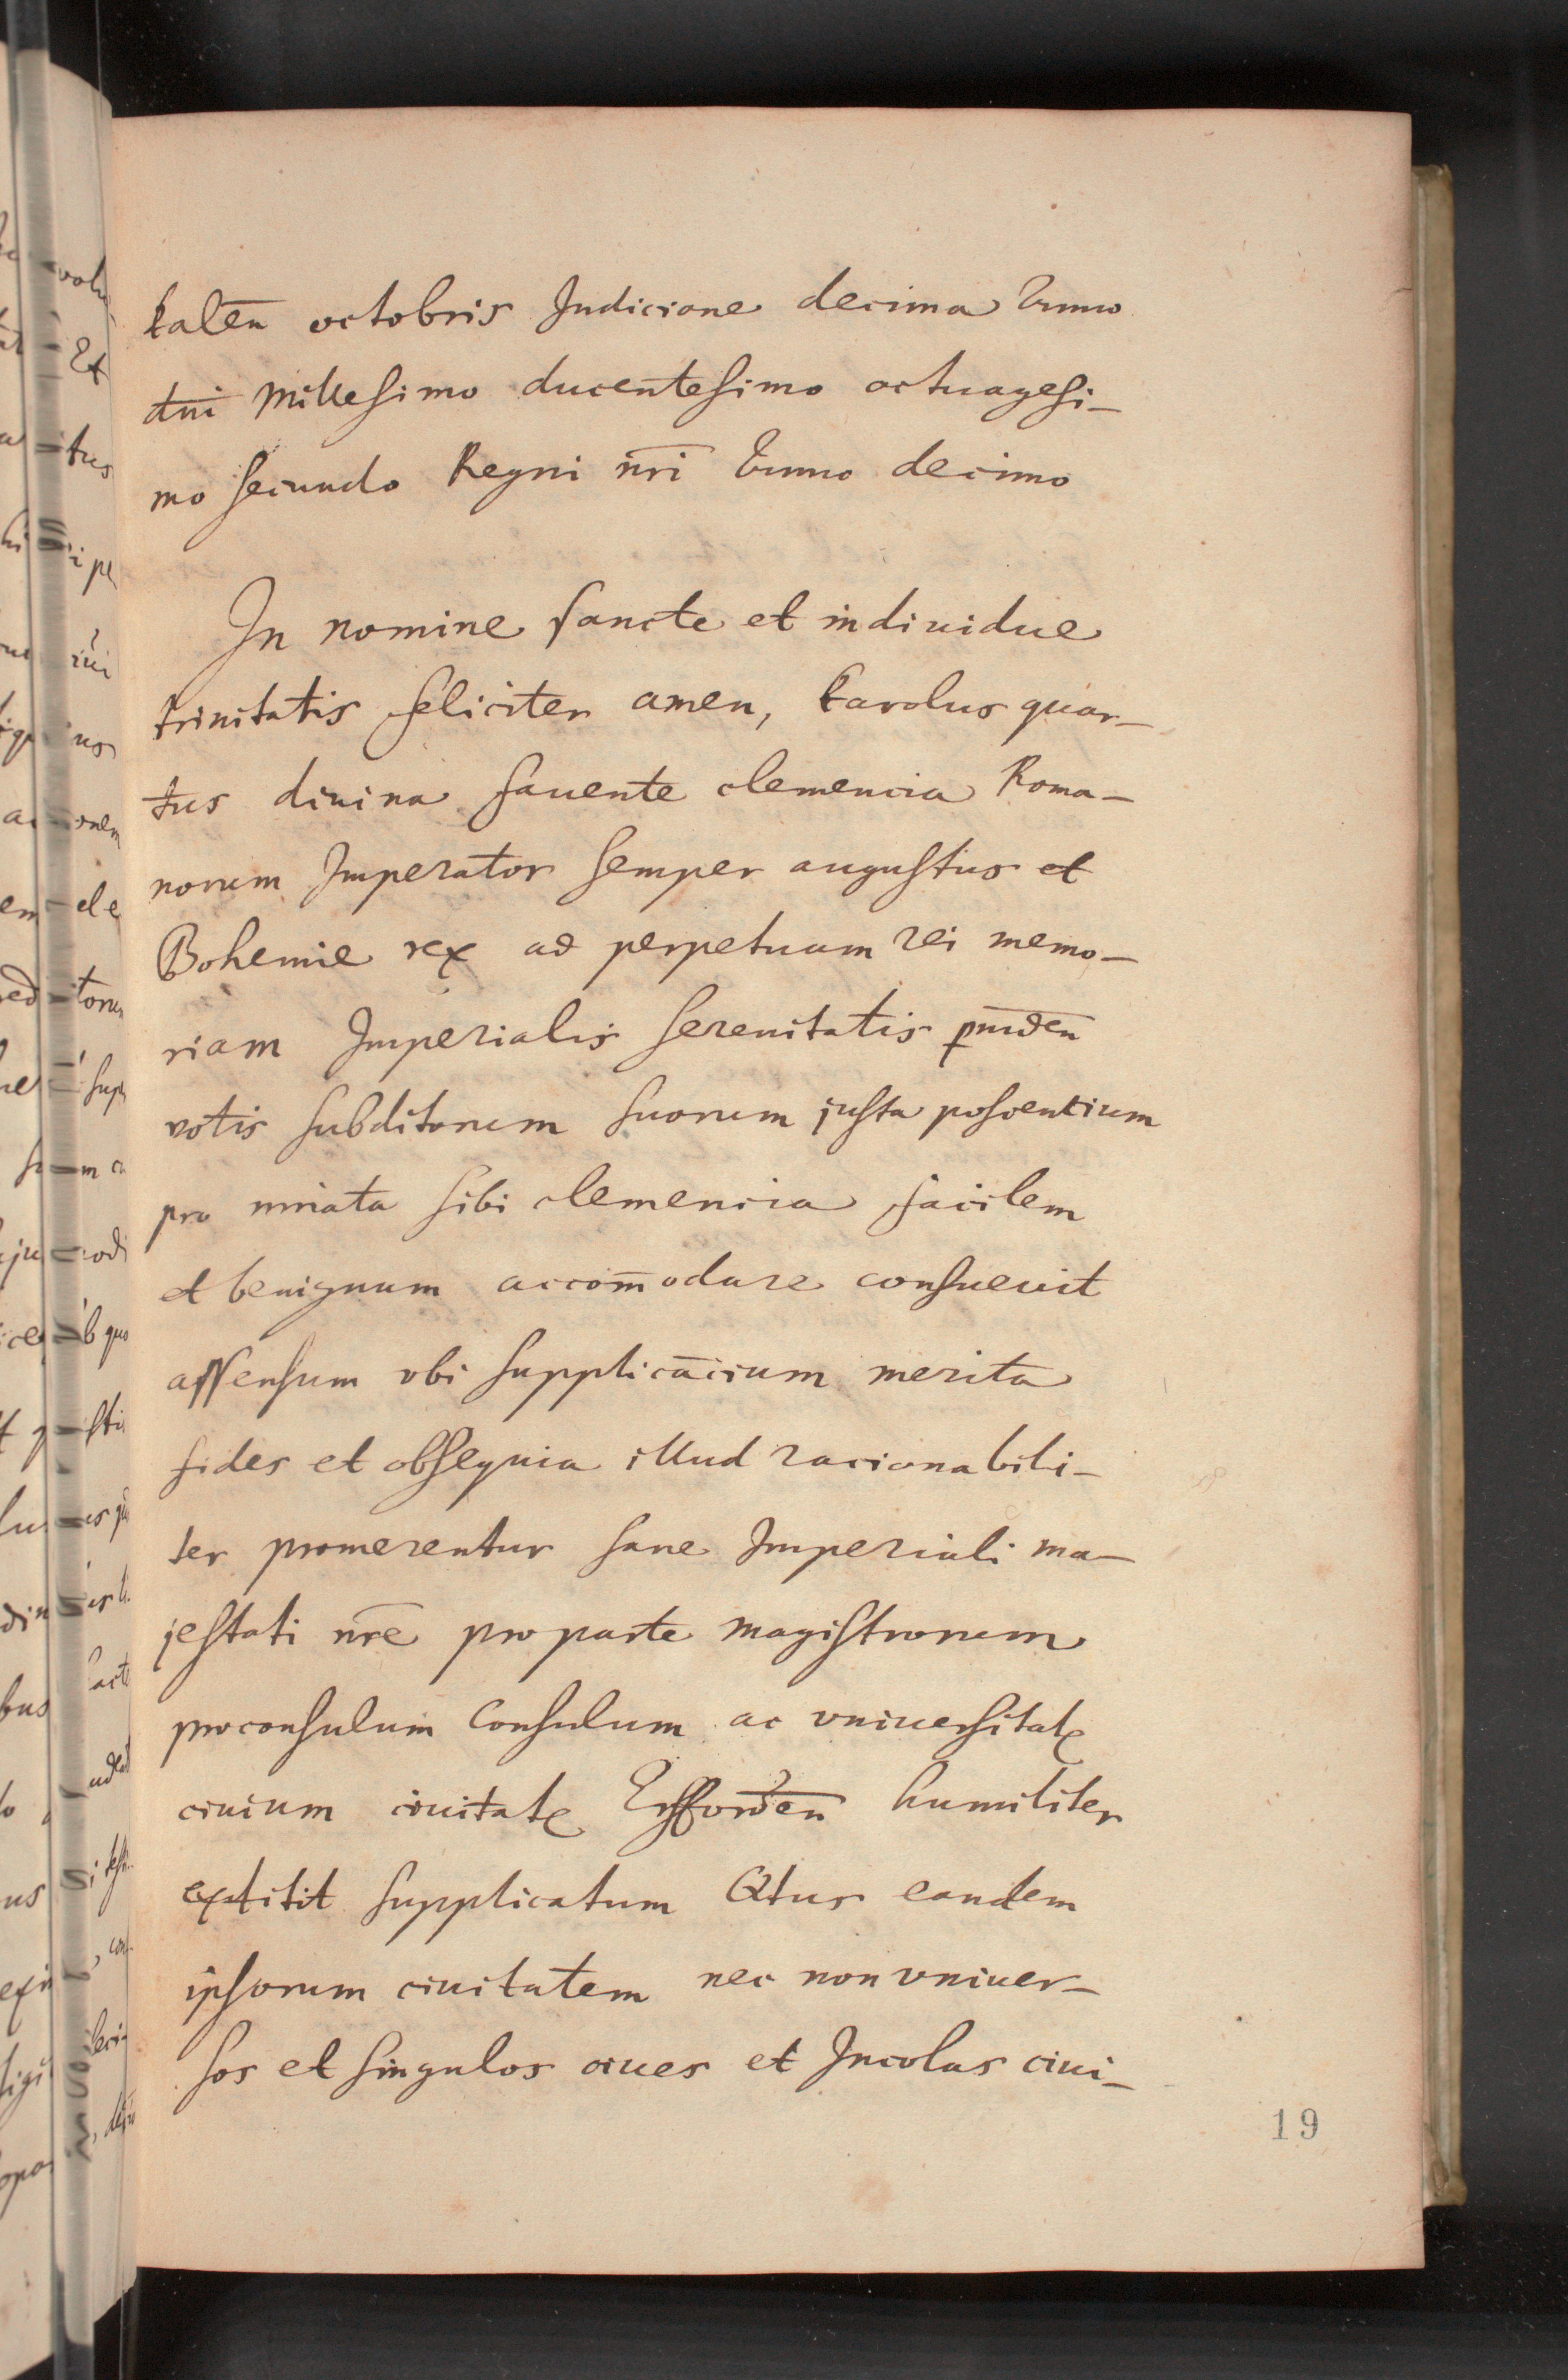 kalen̄ octobris Indicione decima Anno
dn̄i Millesimo ducentesimo octuagesi-
mo secundo Regni nr̄i Anno decimo
In nomine sancte et indiuidue
trinitatis feliciter amen, karolus quar-
tus diuina fauente clemencia Roma-
norum Imperator semper augustus et
Bohemie rex ad perpetuam rei memo-
riam Imperialis serenitatis
votis subditorum suorum justa poscentium
pro innata sibi clemencia facilem
et benignum accom̄odare consueuit
assensum vbi supplicācium merita
fides et obsequia illud racionabili-
ter promerentur sane Imperiali ma-
jestati nr̄e pro parte magistrorum
proconsulum Consulum ac vniuersitatꝭ
ciuium ciuitatꝭ Erfforden̄ humiliter
extitit supplicatum Qtus eandem
ipsorum ciuitatem nec non vniuer-
sos et singulos ciues et Incolas ciui-
19